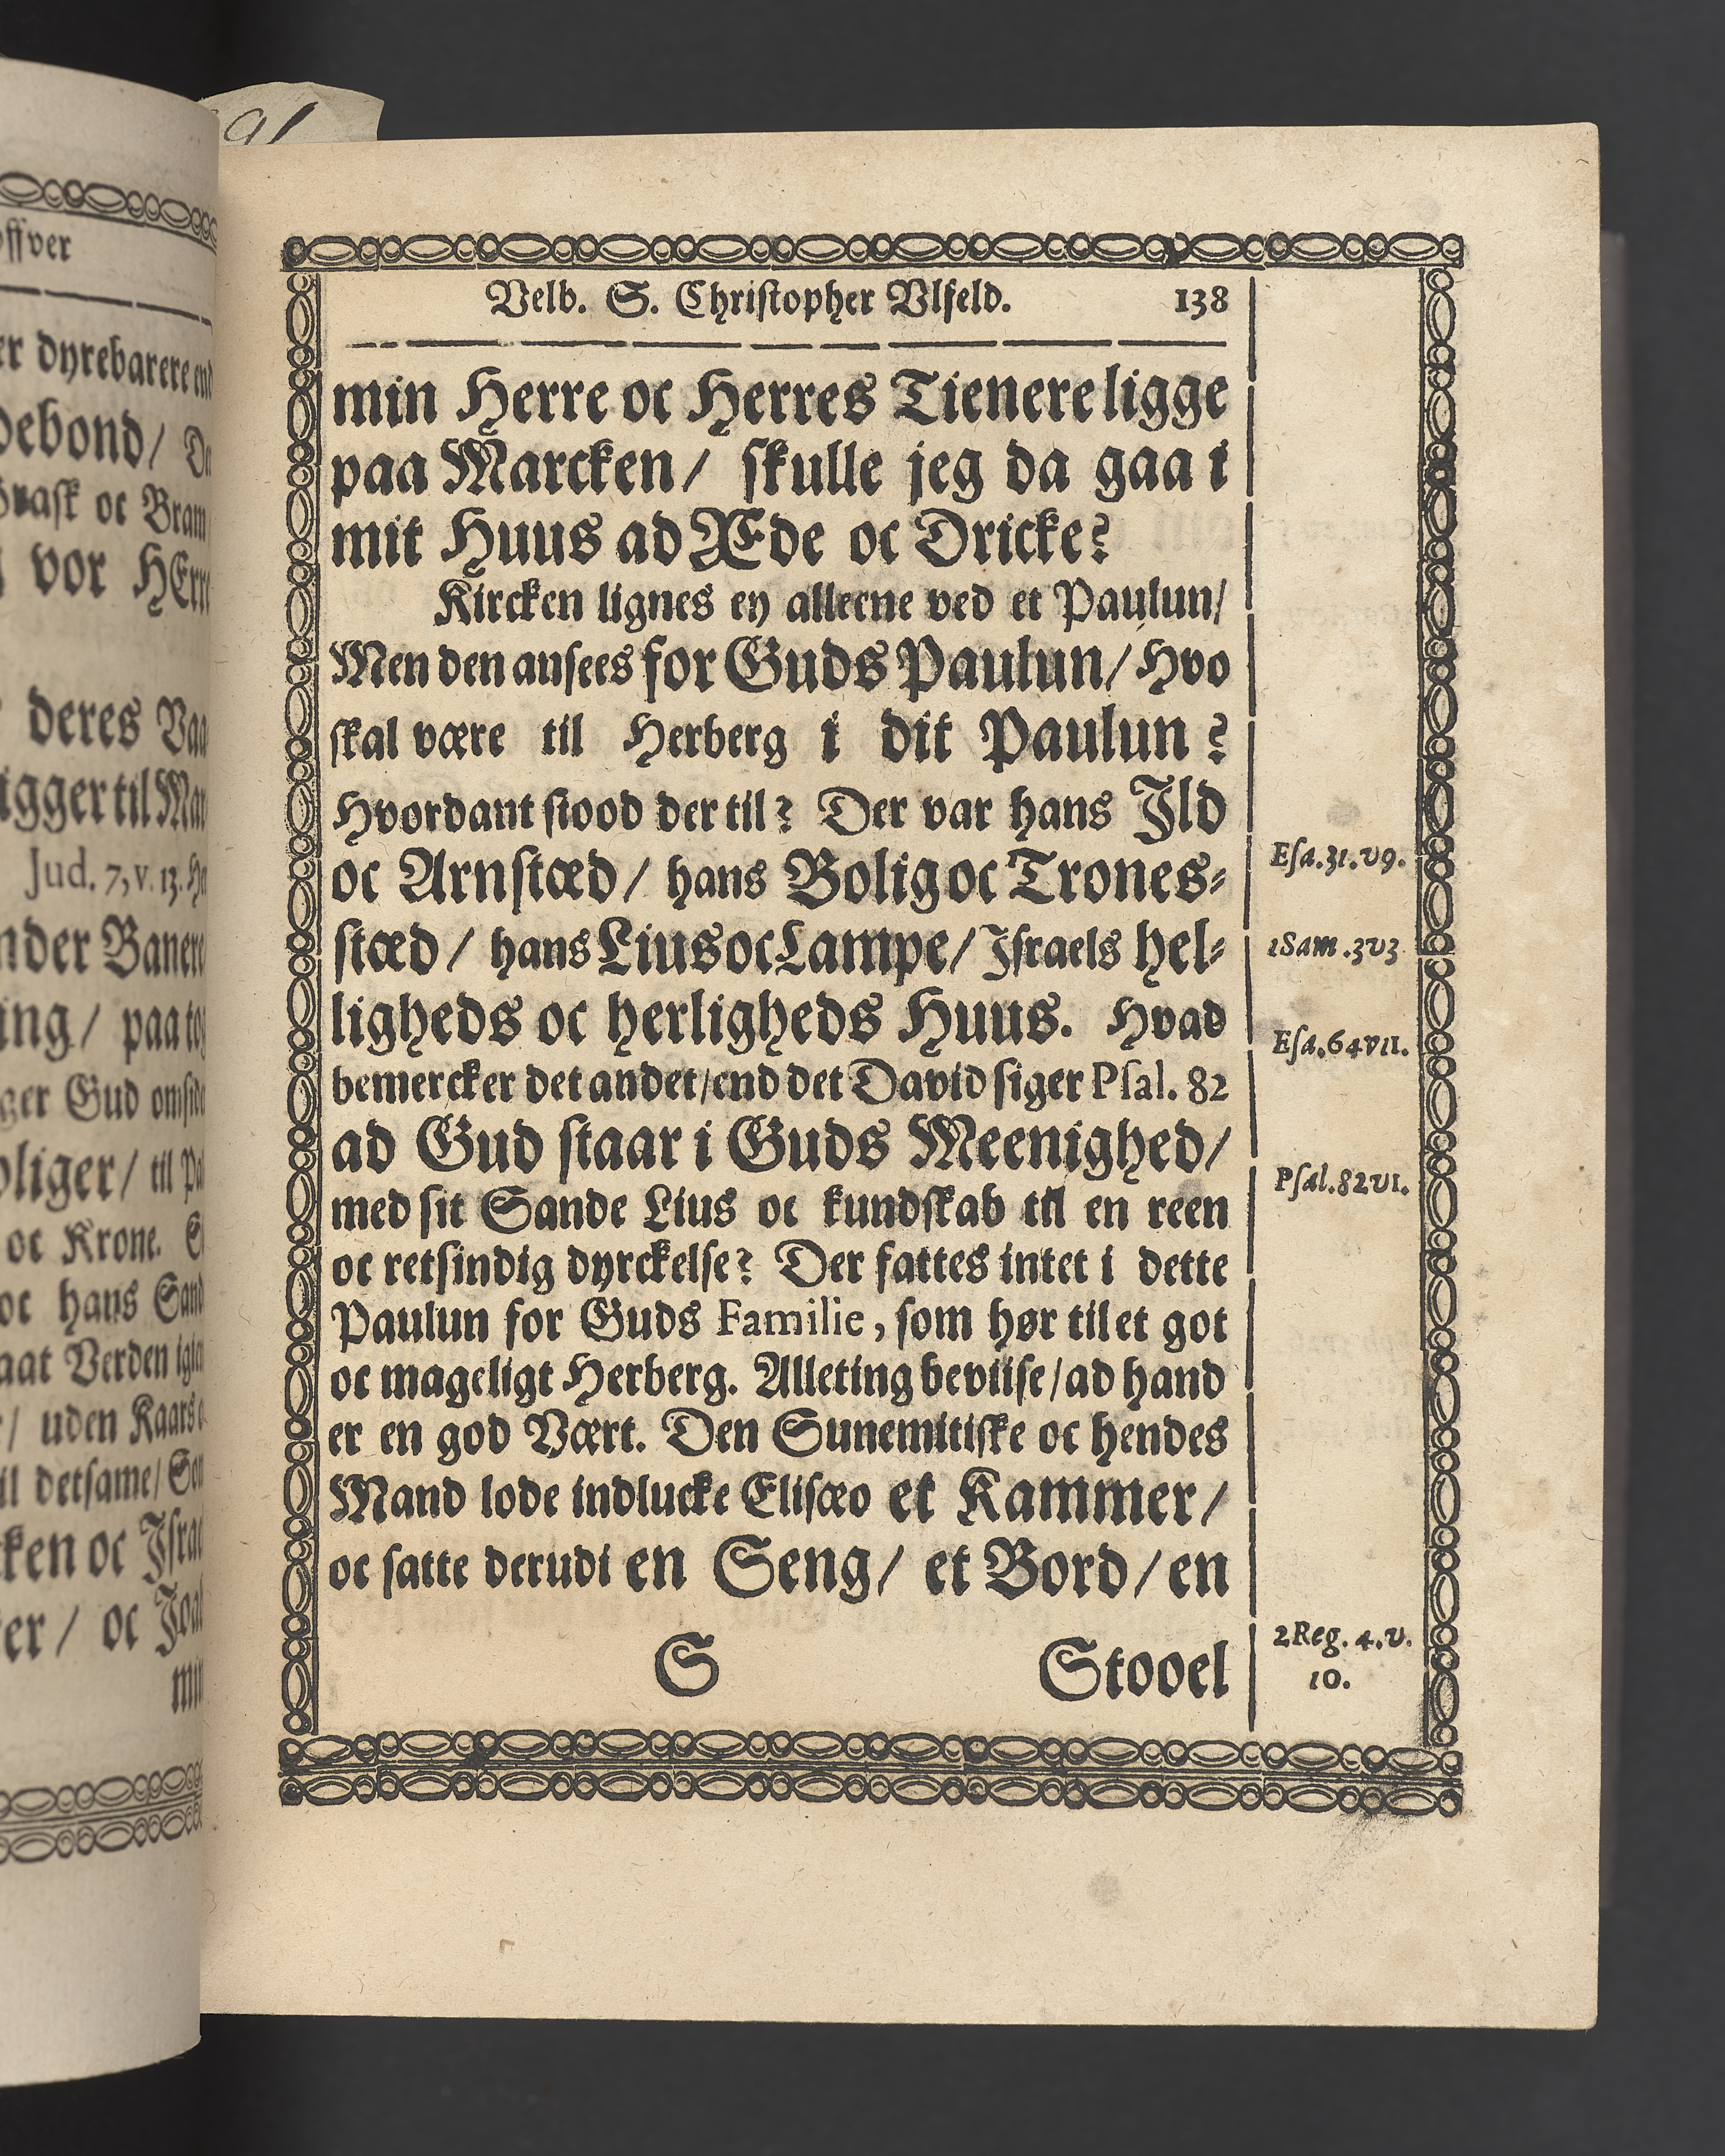 91
ffver
er dyrebarere end
debond/
ask oc Bram
vor HErr
deres
igger til
Jud. 7, v. 13.
nder Banere
ing/ paa
ger Gud
oliger/ til
oc Krone.
oc hans Sand
aat Verden
/ uden Kaars
il detsame/
ken oc Israe
er/ oc
Velb. S. Christopher Vlfeld. 138
min Herre oc Herres Tienere ligge
paa Marcken/ skulle jeg da gaa i
mit Huus ad Æde oc Dricke?
Kircken lignes ey alleene ved et Paulun/
Men den ansees for Guds Paulun/ Hvo
skal være til Herberg i dit Paulun?
Hvordant stood der til? Der var hans Ild
oc Arnstæd/ hans Bolig oc Trones-
stæd/ hans Lius oc Lampe/ Israels hel-
ligheds oc herligheds Huus. Hvad
bemercker det andet/ end det David siger Psal. 82
ad Gud staar i Guds Meenighed/
med sit Sande Lius oc kundskab til en reen
oc retsindig dyrckelse? Der fattes intet i dette
Paulun for Guds Familie, som hør til et got
oc mageligt Herberg. Alleting beviise/ ad hand
er en god Vært. Den Sunemitiske oc hendes
Mand lode indlucke Elisæo et Kammer/
oc satte derudi en Seng/ et Bord/ en
S Stooel
Esa.31.v9.
1Sam.3v3
Esa.64v11.
Psal.82v1.
2Reg. 4.v.
10.